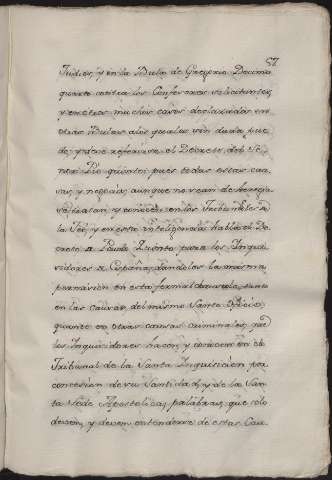 57
Judios, y en la Bula de Gregorio Decimo
quarto contra los Confesores solicitantes,
y en otros muchos casos declarados en
otras Bulas a los quales sin duda pue
de, y debe referirse el Decreto del Ge
neral Pio quinto; pues todas estas cau
sas, y negocios aunque no sean de heregia
se tratan, y conocen en los Tribunales de
la Fée, y en esta inteligencia habla el De
creto de Paulo Quinto para los Inqui
sidores de España, dandoles la misma
permision en esta formal clausula, tanto
en las causas del mismo Santo Oficio,
quanto en otras causas criminales, que
los Inquisidores hacen, y conocen en el
Tribunal de la Santa Inquisicion por
concesion de su Santidad, y de la San
ta Sede Apostolica, palabras, que solo
deben, y deven entenderse de estas Cau